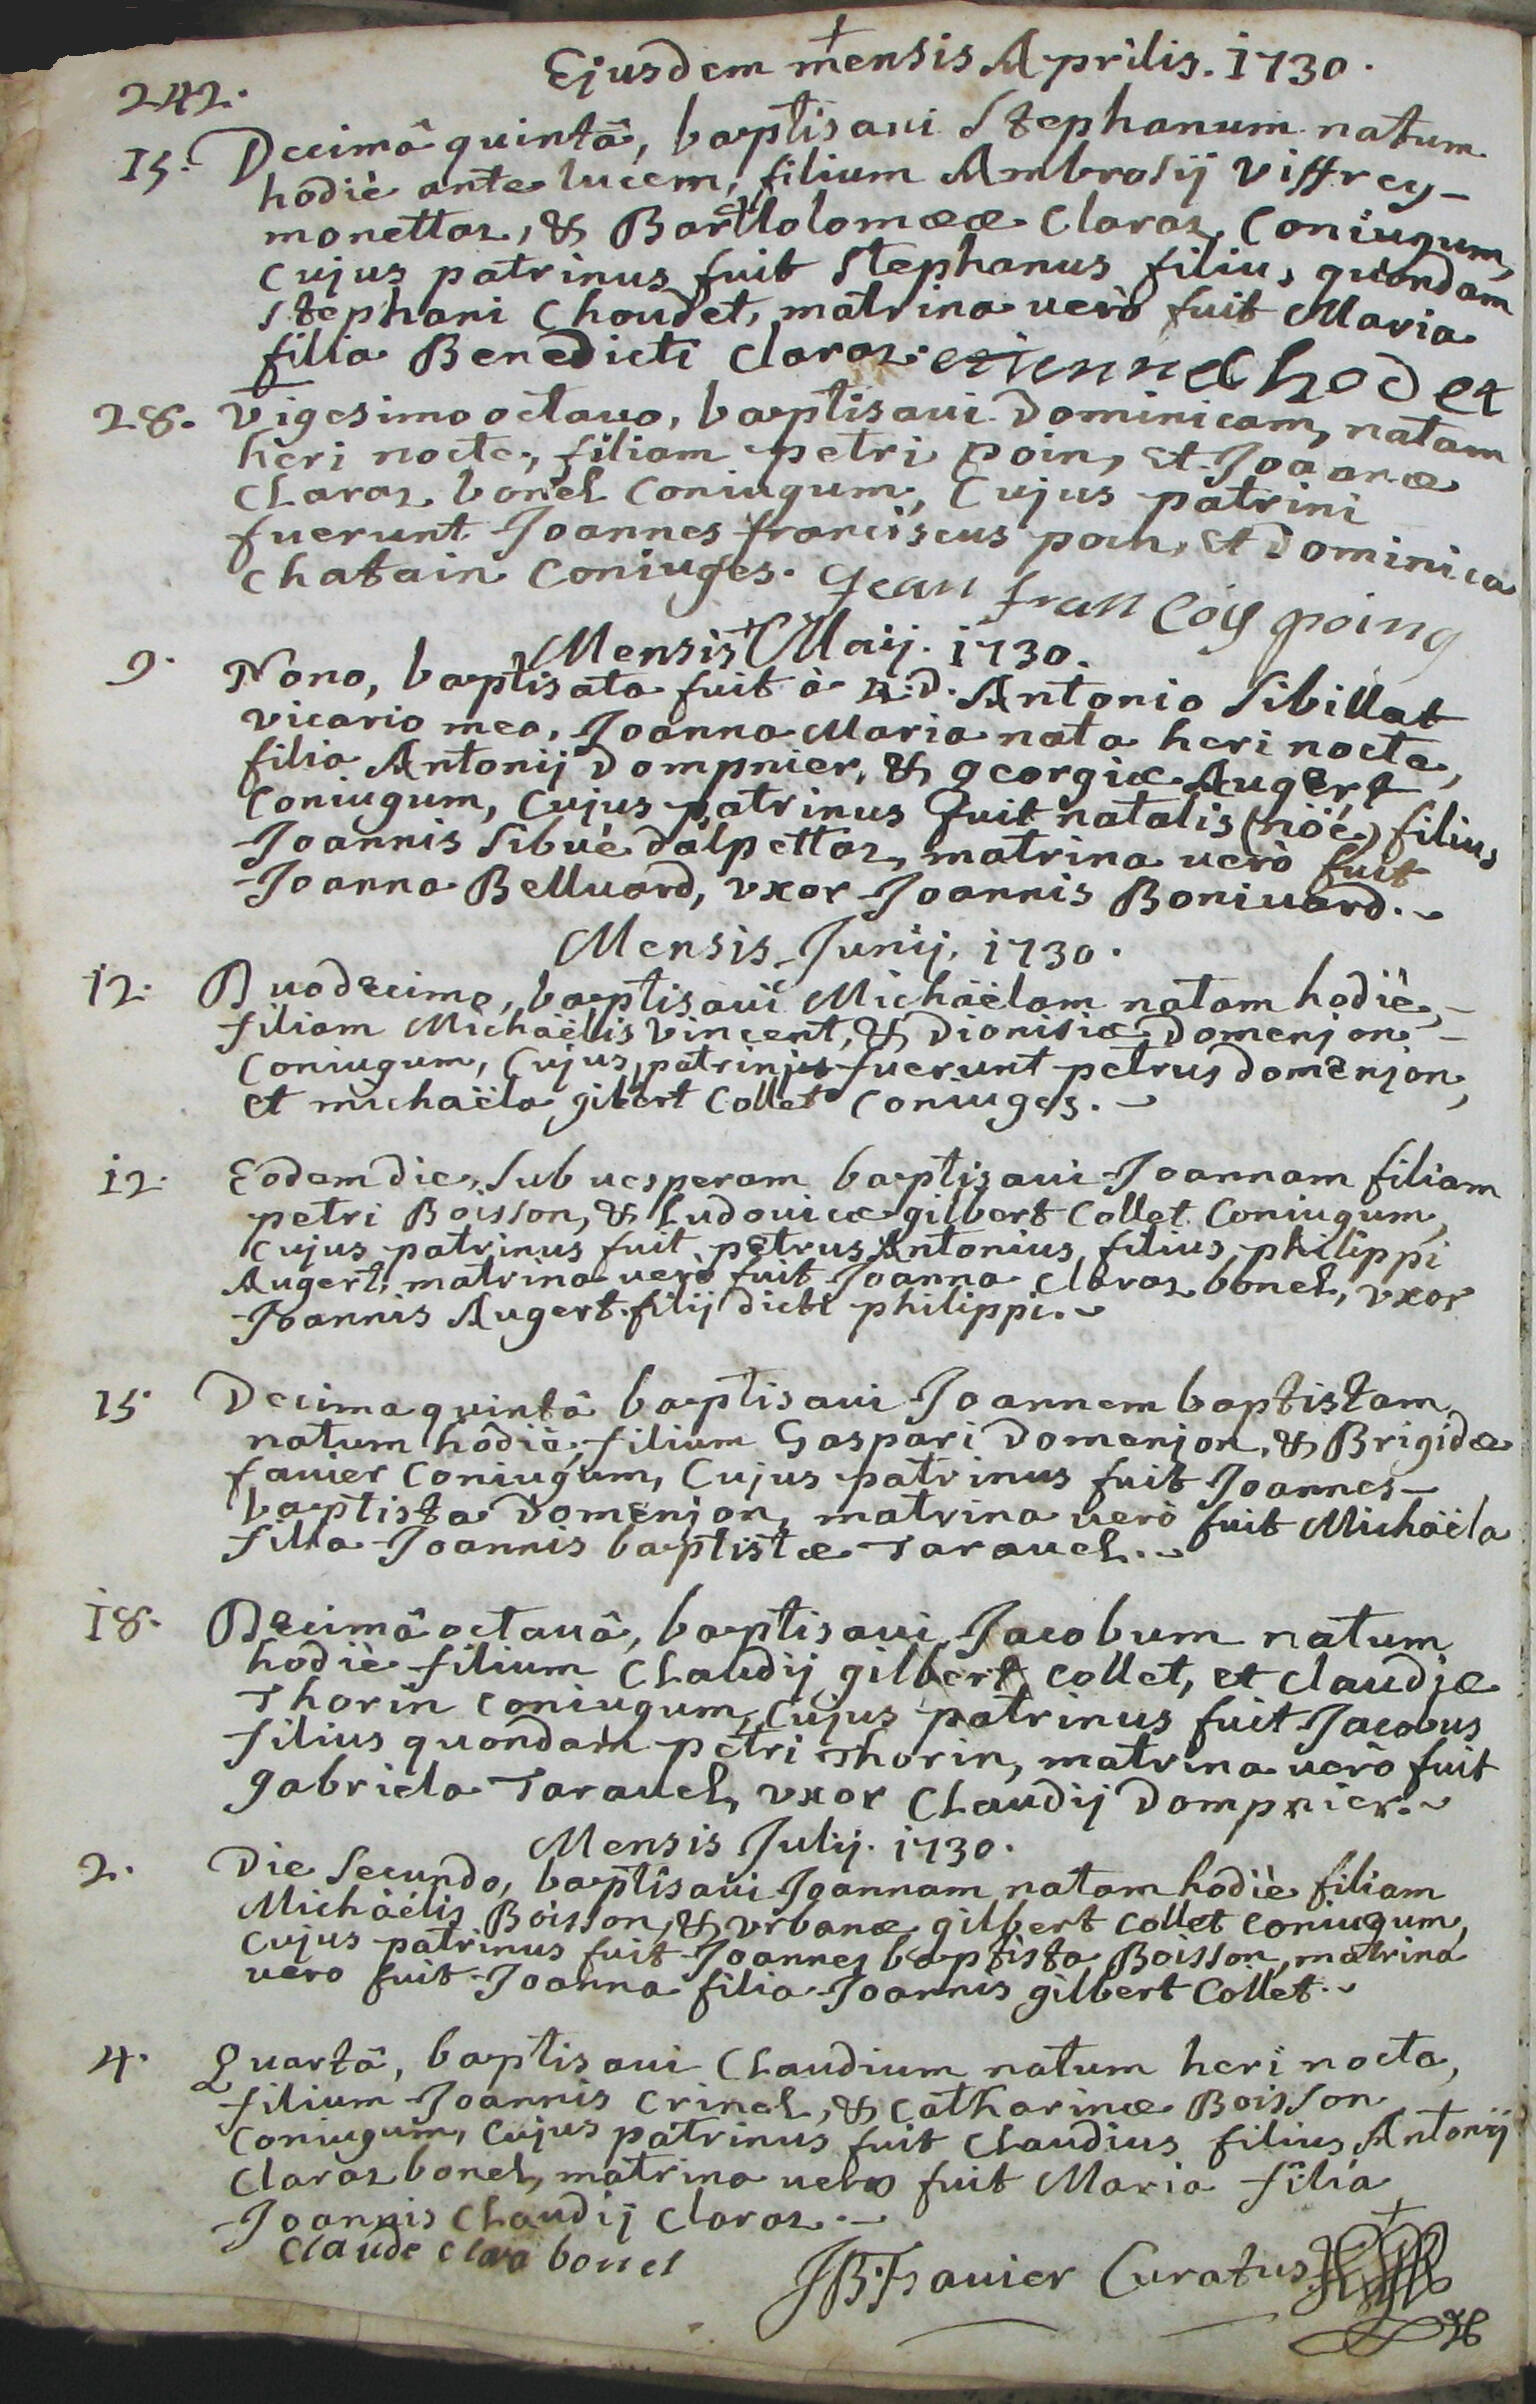 Ejusdem mensis Aprilis. 1730.
242.
15. Decimâ quintâ, baptisaui Stephanum natum
hodiè ante lucem, filium Ambrosij Viffrey-
monettaz, & Bartholomææ Claraz Coniugum,
Cujus patrinus fuit Stephanus filius quondam
Stephani Choudet, matrina uerò fuit Maria
filia Benedicti Claraz. etienne Chodet
28. Vigesimo octauo, baptisaui Dominicam, natam
heri nocte, filiam petri poin, et Joanæ
Claraz bonel Coniugum, Cujus patrini
fuerunt Joannes franciscus poin, et Dominica
Chatain Coniuges. Jean francois poing
Mensis Maij. 1730.
9. Nono, baptisata fuit à R.D. Antonio Sibillat
vicario meo, Joanna Maria nata heri nocte,
filia Antonij Dompnier, & georgiæ Augert
Coniugum, Cujus patrinus fuit natalis (nöé) filius
Joannis Sibué dalpettaz, matrina uerò fuit
Joanna Belluard, vxor Joannis Boniuard.
Mensis Junij. 1730.
12. Duodecimo, baptisaui Michaëlam natam hodiè,
filiam Michaëlis Vincent, & Dionisiæ Domenjon
Coniugum, Cujus patrini fuerunt petrus domenjon,
et michaëla gilbert Collet Coniuges.
12. Eodem die, sub uesperam baptisaui Joannam filiam
petri Boisson, & Ludouicæ gilbert Collet Coniugum,
Cujus patrinus fuit petrus Antonius filius philippi
Augert, matrina uerò fuit Joanna Claraz bonel, vxor
Joannis Augert filij dicti philippi.
15 Decima quintâ baptisaui Joannem baptistam
natum hodiè, filium Gaspari Domenjon, & Brigidæ
fauier Coniugum, Cujus patrinus fuit Joannes-
baptista Domenjon, matrina uerò fuit Michaëla
filia Joannis baptistæ Tarauel.
18. Decimâ octauâ, baptisaui Jacobum natum
hodiè filium Claudij gilbert collet, et Claudiæ
Thorin coniugum, Cujus patrinus fuit Jacobus
filius quondam petri Thorin, matrina uerò fuit
gabriela Tarauel, vxor Claudij Dompnier.
Mensis Julij. 1730.
2. Die Secundo, baptisaui Joannam natam hodiè filiam
Michaëlis Boisson, & vrbanæ gilbert collet coniugum,
cujus patrinus fuit Joannes baptista Boisson, matrina
uero fuit Joanna filia Joannis gilbert Collet.
4. Quartâ, baptisaui Claudium natum heri nocte,
filium Joannis Crinel, & Catharinæ Boisson
Coniugum, Cujus patrinus fuit Claudius filius Antonij
Claraz bonel, matrina uero fuit Maria filia
Joannis Claudij Claraz.
Claude Clara bonel
JB. Fauier Curatus